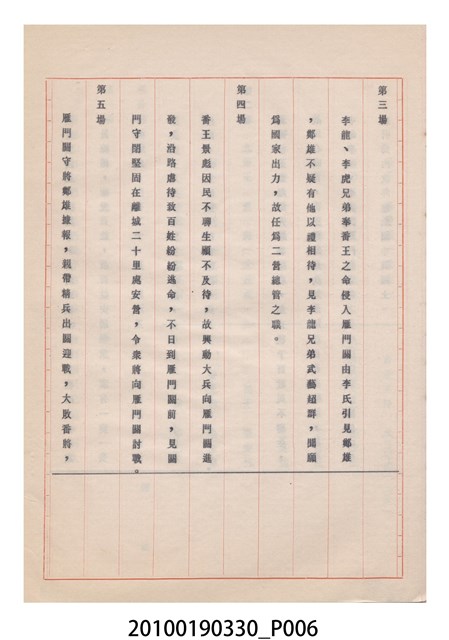 第三場
李龍、李虎兄弟奉番王之命侵入雁門關由李氏引見鄭雄
，鄭雄不疑有他以禮相待，見李龍兄弟武藝超群，閱願
為國家出力，故任為二營總管之職。
第四場
番王景彪因民不聊生顧不及待，故興動大兵向雁門關進
發，沿路虐待致百姓紛紛逃命，不日到雁門關前，見關
門守閉堅固在離城二十里處安營，令衆將向雁門關討戰。
第五場
雁門關守將鄭雄據報，親帶精兵出關迎戰，大敗番將，
20100190330_P006